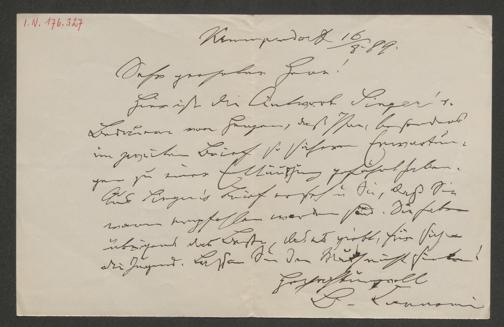 I.N. 176.327
16/8. 89.
Sehr geehrter Herr!
Hier ist die Antwort Singer's.
Bedauern von Herzen, daß Ihre, besonders
im zweiten Brief so schönen Erwartun-
gen zu einer Enttäuschung geführt haben.
Aus Singer's Brief ersehen Sie, daß Sie
warm empfohlen worden sind. Sie haben
übrigens das Beste, das es giebt, für sich:
die Jugend. Lassen Sie den Muth nicht sinken!
Hochachtungsvoll